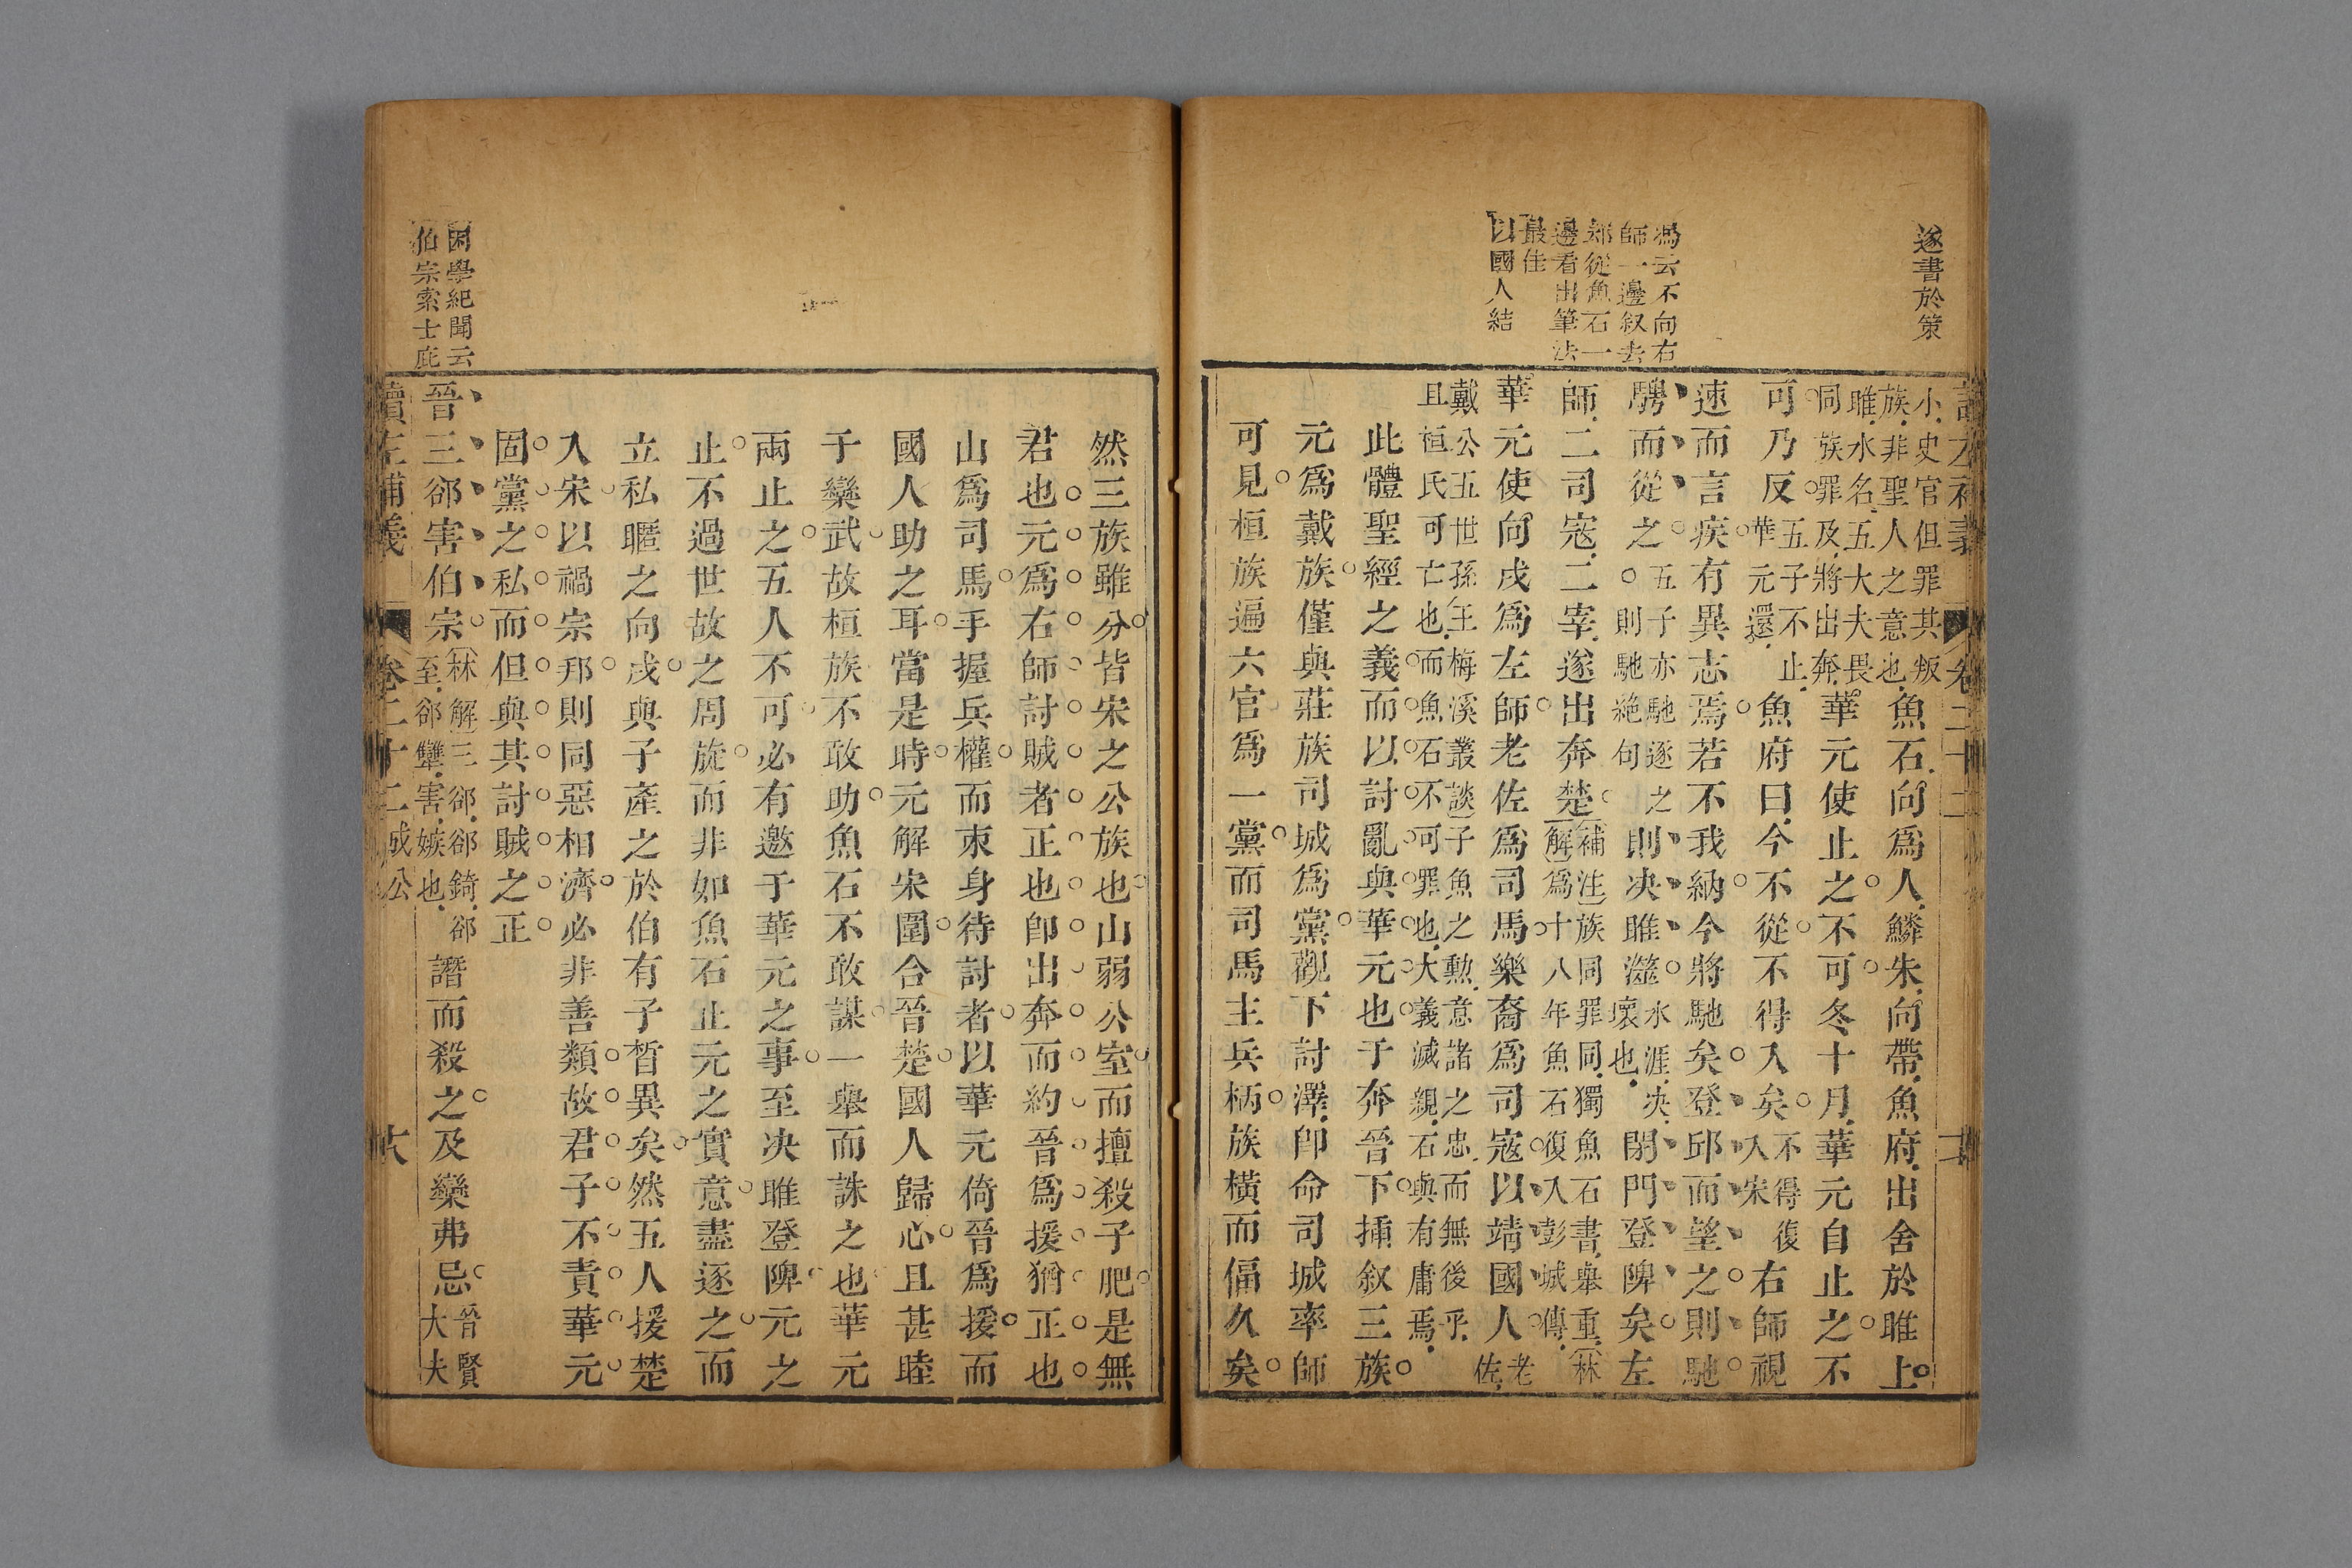 遂書於策
馮云不向右
師一邊叙去
却從魚石一
邊看出筆法
最佳
以國人結
小史官但罪其叛
族非聖人之意也
魚石向爲人鱗朱向帶魚府出舍於睢上
睢水名五大夫畏
同族罪及將出奔
華元使止之不可冬十月華元自止之不
可乃反
五子不止
華元還
魚府曰今不從不得入矣
不得復
入宋
右師視
速而言疾有異志焉若不我納今將馳矣登邱而望之則馳
騁而從之
五子亦馳逐之
則馳絕句
則决睢澨
水涯决
壞也
閉門登陴矣左
師二司寇二宰遂出奔楚
補注族同罪同獨魚石書舉重林
解爲十八年魚石復入彭城傳
華元使向戌爲左師老佐爲司馬樂裔爲司寇以靖國人
老
佐
戴公五世孫王梅溪叢談子魚之勲意諸之忠而無後乎
且桓氏可亡也而魚石不可罪也大義滅親石與有庸焉
此體聖經之義而以討亂與華元也于奔晉下揷叙三族
元爲戴族僅與莊族司城爲黨觀下討澤卽命司城率師
可見桓族遍六官爲一黨而司馬主兵柄族橫而偪久矣
讀左補義
卷二十二
然三族雖分皆宋之公族也山弱公室而擅殺子肥是無
君也元爲右師討賊者正也卽出奔而約晉爲援猶正也
山爲司馬手握兵權而束身待討者以華元倚晉爲援而
國人助之耳當是時元解宋圍合晉楚國人歸心且甚睦
于欒武故桓族不敢助魚石不敢謀一舉而誅之也華元
兩止之五人不可必有邀于華元之事至决睢登陴元之
止不過世故之周旋而非如魚石止元之實意盡逐之而
立私暱之向戌與子產之於伯有子晳異矣然五人援楚
入宋以禍宗邦則同惡相濟必非善類故君子不責華元
固黨之私而但與其討賊之正
困學紀聞云
伯宗索士庇
晉三郤害伯宗
林解三郤郤錡郤
至郤犨害嫉也
譖而殺之及欒弗忌
晉賢
大夫
讀左補義
卷二十二
成公